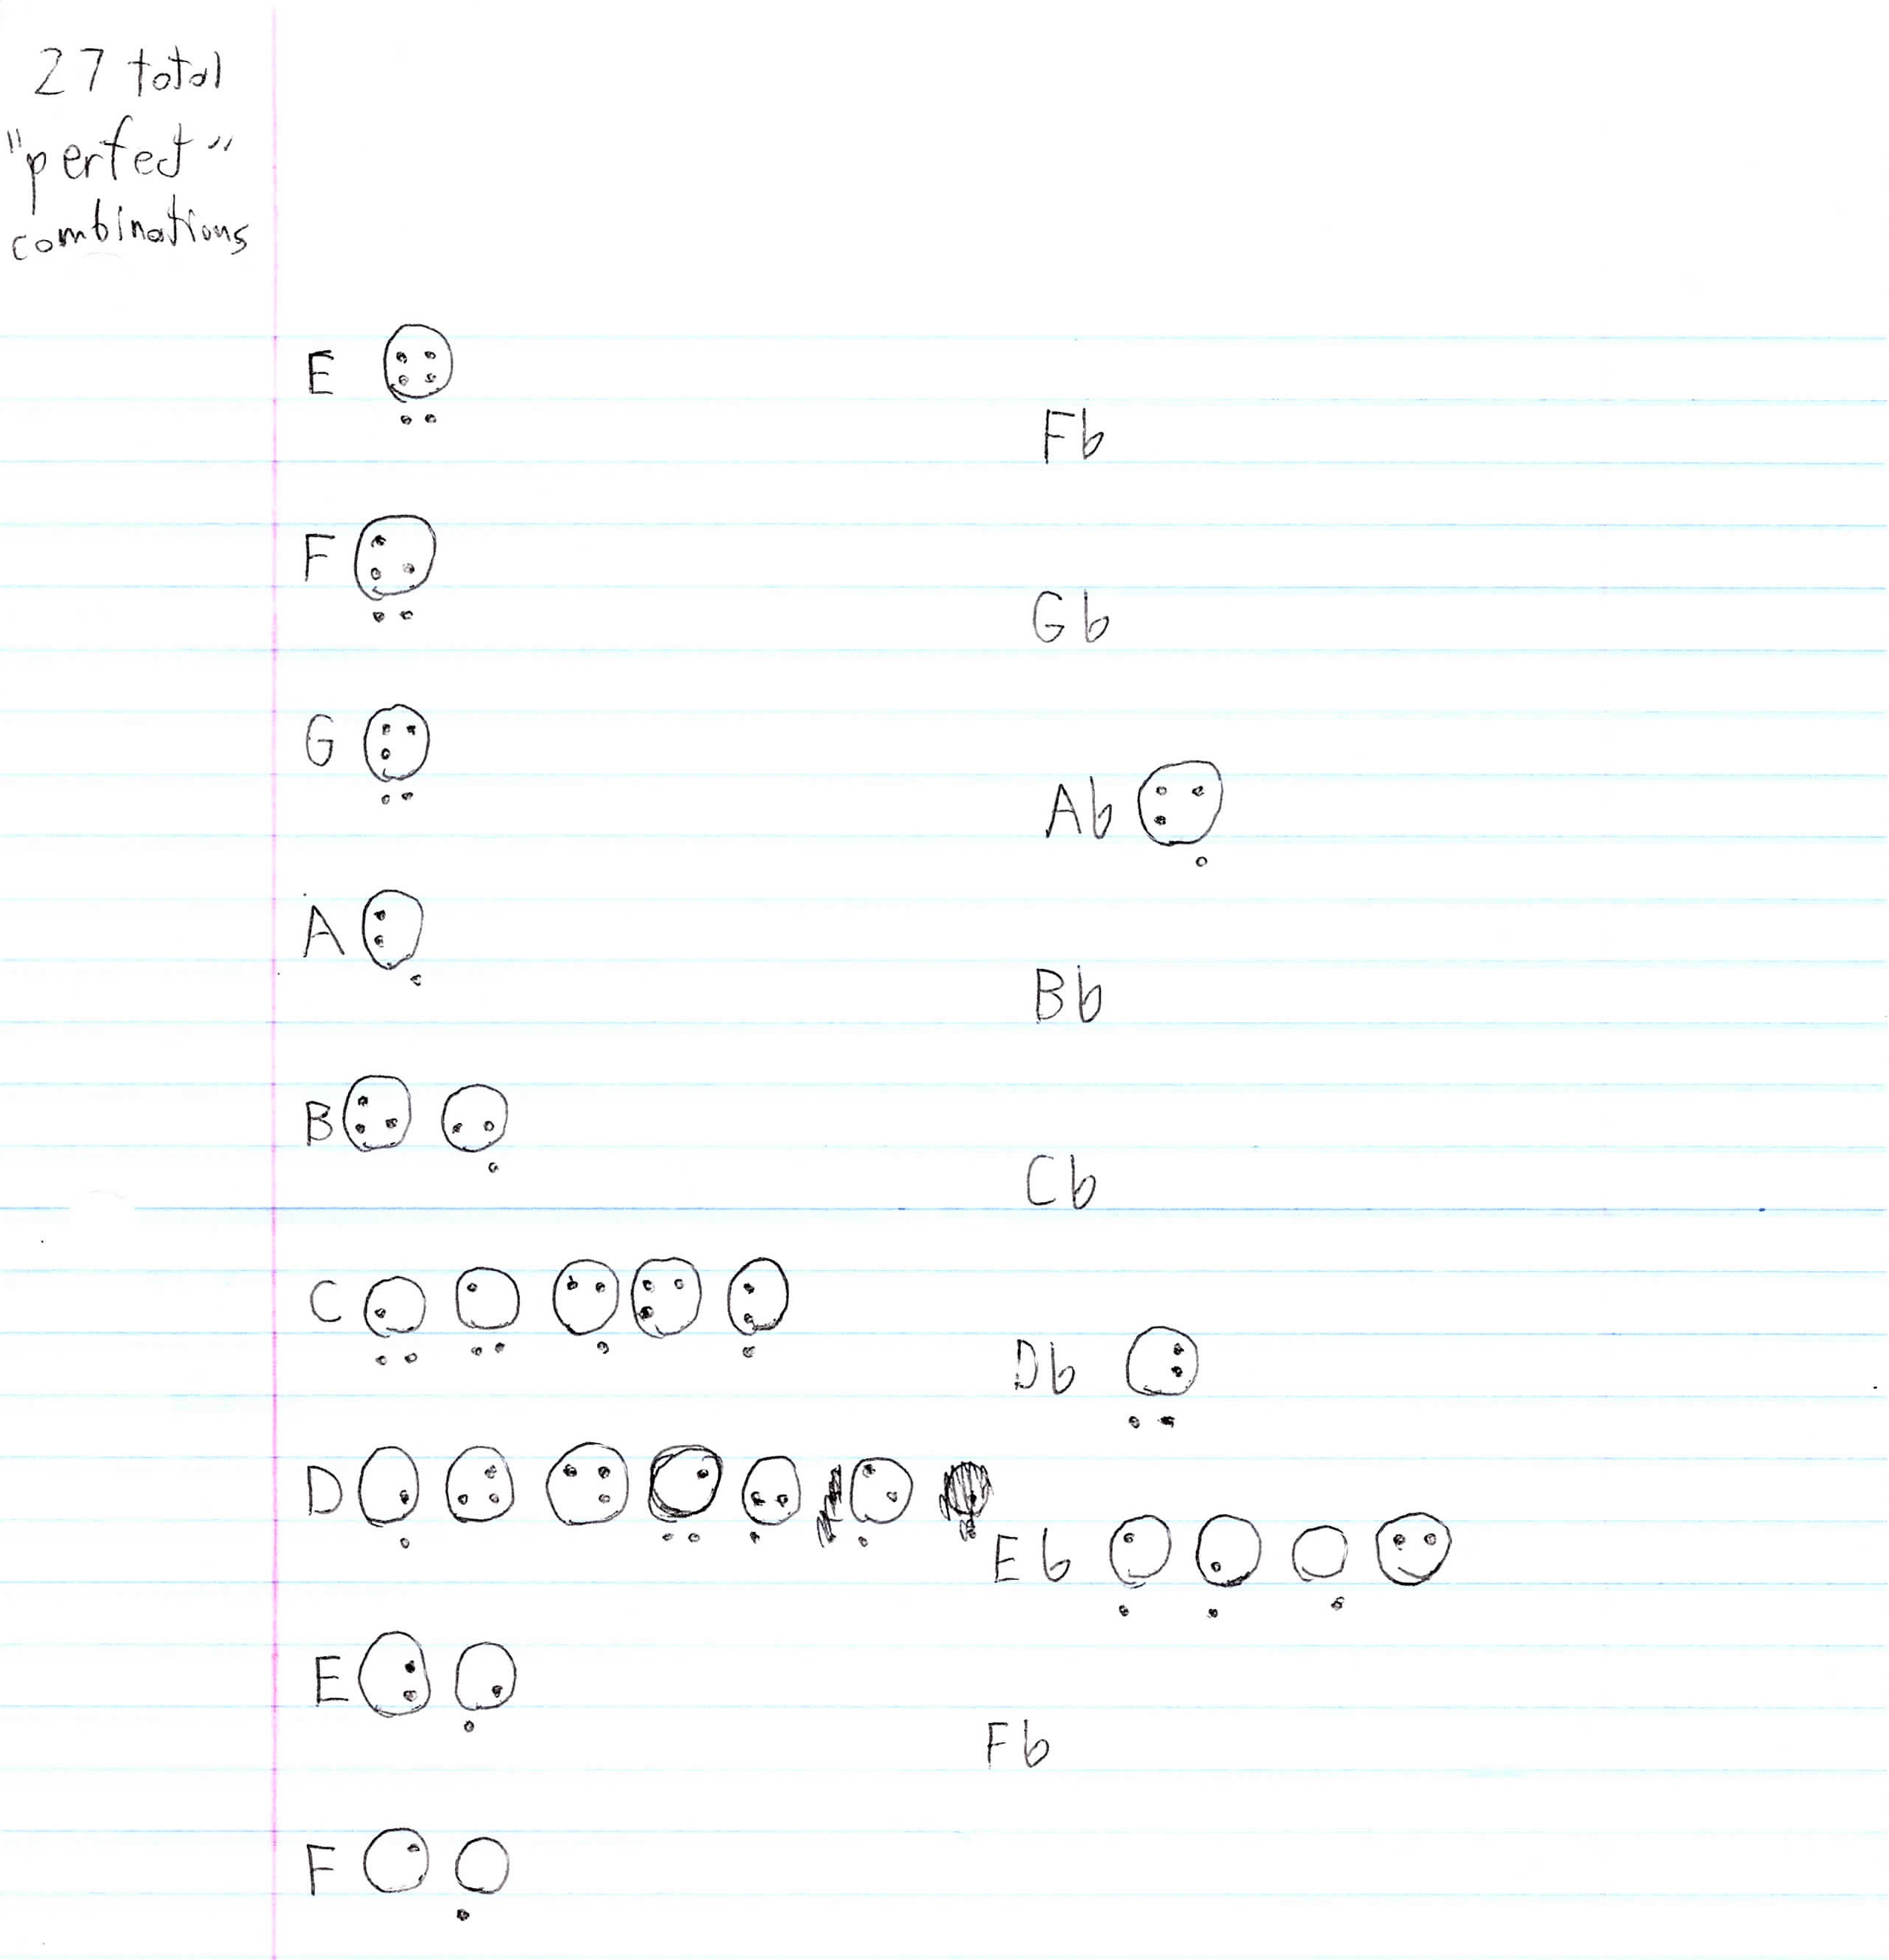 27 total
"perfect"
combinations
E
Fb
F
Gb
G
Ab
A
Bb
B
Cb
C
Db
D
Eb
E
Fb
F